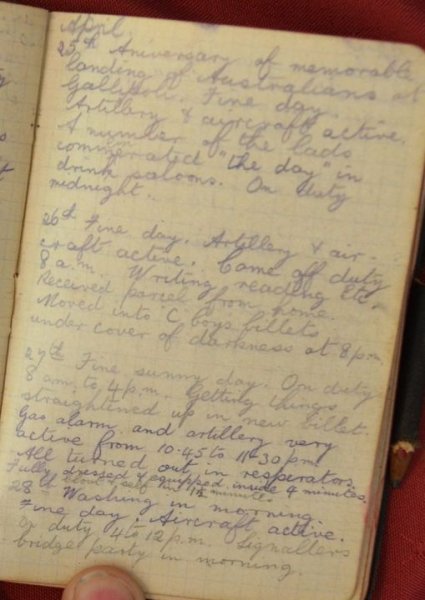 April
25th Aniversary of memorable
landing of Australians at
Gallipoli. Fine day.
Artillery & aircraft active.
A number of the lads
commemerated "the day" in
drink saloons. On duty
midnight.
26th Fine day. Artillery & air-
craft active. Came off duty
8 a.m. Writing reading etc.
Received parcel from home.
Moved into C boys billets
under cover of darkness at 8 p.m.
27th Fine sunny day. On duty
8 am. to 4 p.m. Getting things
straightened up in new billet.
Gas alarm and artillery very
active from 10.45 to 11.30 pm
All turned out in resperators.
Fully dressed & equipped inside 4 minutes.
15 minutes
28th Washing in morning
Fine day. Aircraft active.
On duty 4 to 12 p.m. Signallers
bridge party in morning.